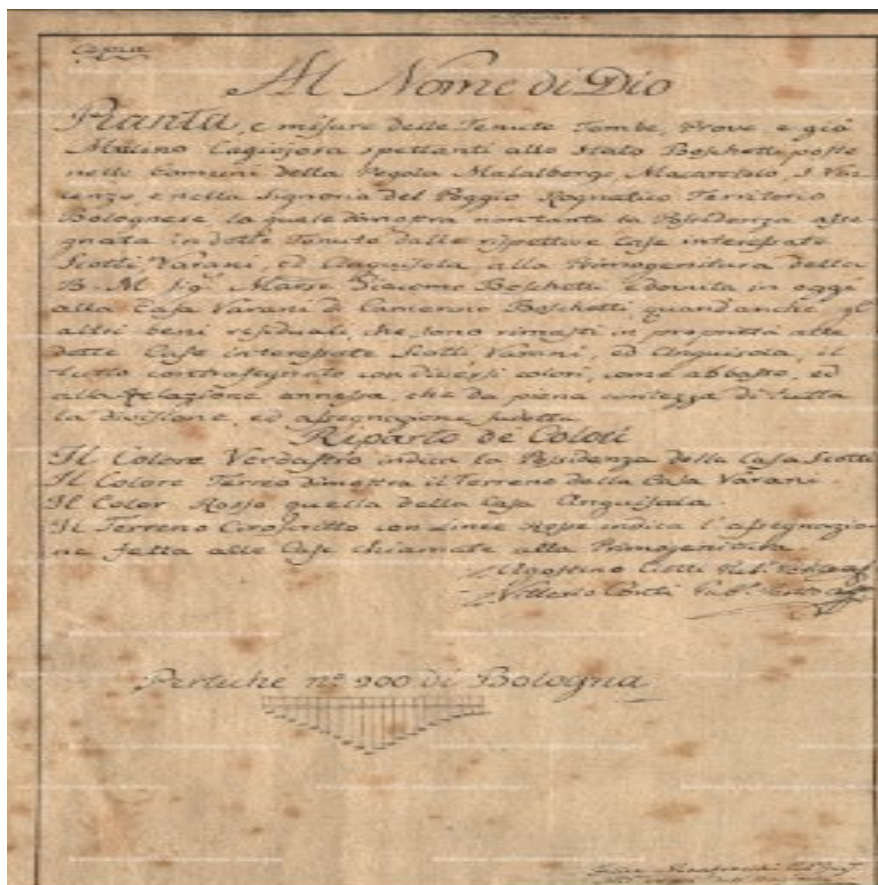 Copia
Al Nome di Dio
Pianta, e misure delle Tenute Tombe, Prove, e già
Mulino spettanti allo Stato Boschetti poste
nelli Comuni della Pegola Malalbergo, Macaretolo, S. Vin
cenzo, e nella Signoria del Poggio Rognatico Territorio
Bolognese la quale dimostra non tanto la Possidenza asse
gnata in dette Tenute dalle rispettive Case interessate
Scotti, Varani, ed Anguisola, alla Primogenitura della
B. M. Sigr. Marse Giacomo Boschetti devoluta in oggi
alla Casa Varani di Camerino Boschetti, quand'anche gl'
altri beni residuali, che sono rimasti in proprietà alle
dette Case interessate Scotti Varani, ed Anguisola, il
tutto contrasegnato con diversi colori, come abbasso, ed
alla Relazione annessa, che da piena contezza di tutta
la divisione, ed assegnazione sudetta
Riparto de Colori
Il Colore Verdastro indica la Possidenza della Casa Scotti
Il Colore Terreo dimostra il Terreno della Casa Varani.
Il Color Rosso quella della Casa Anguisola.
Il Terreno Circoscritto con Linee Rosse indica l'assegnazio-
ne fatta alle Case chiamate alla Primogenitura
Agostino Ciotti Pub.
Vittorio Conti Pub.
Pertiche n.º 900 di Bologna